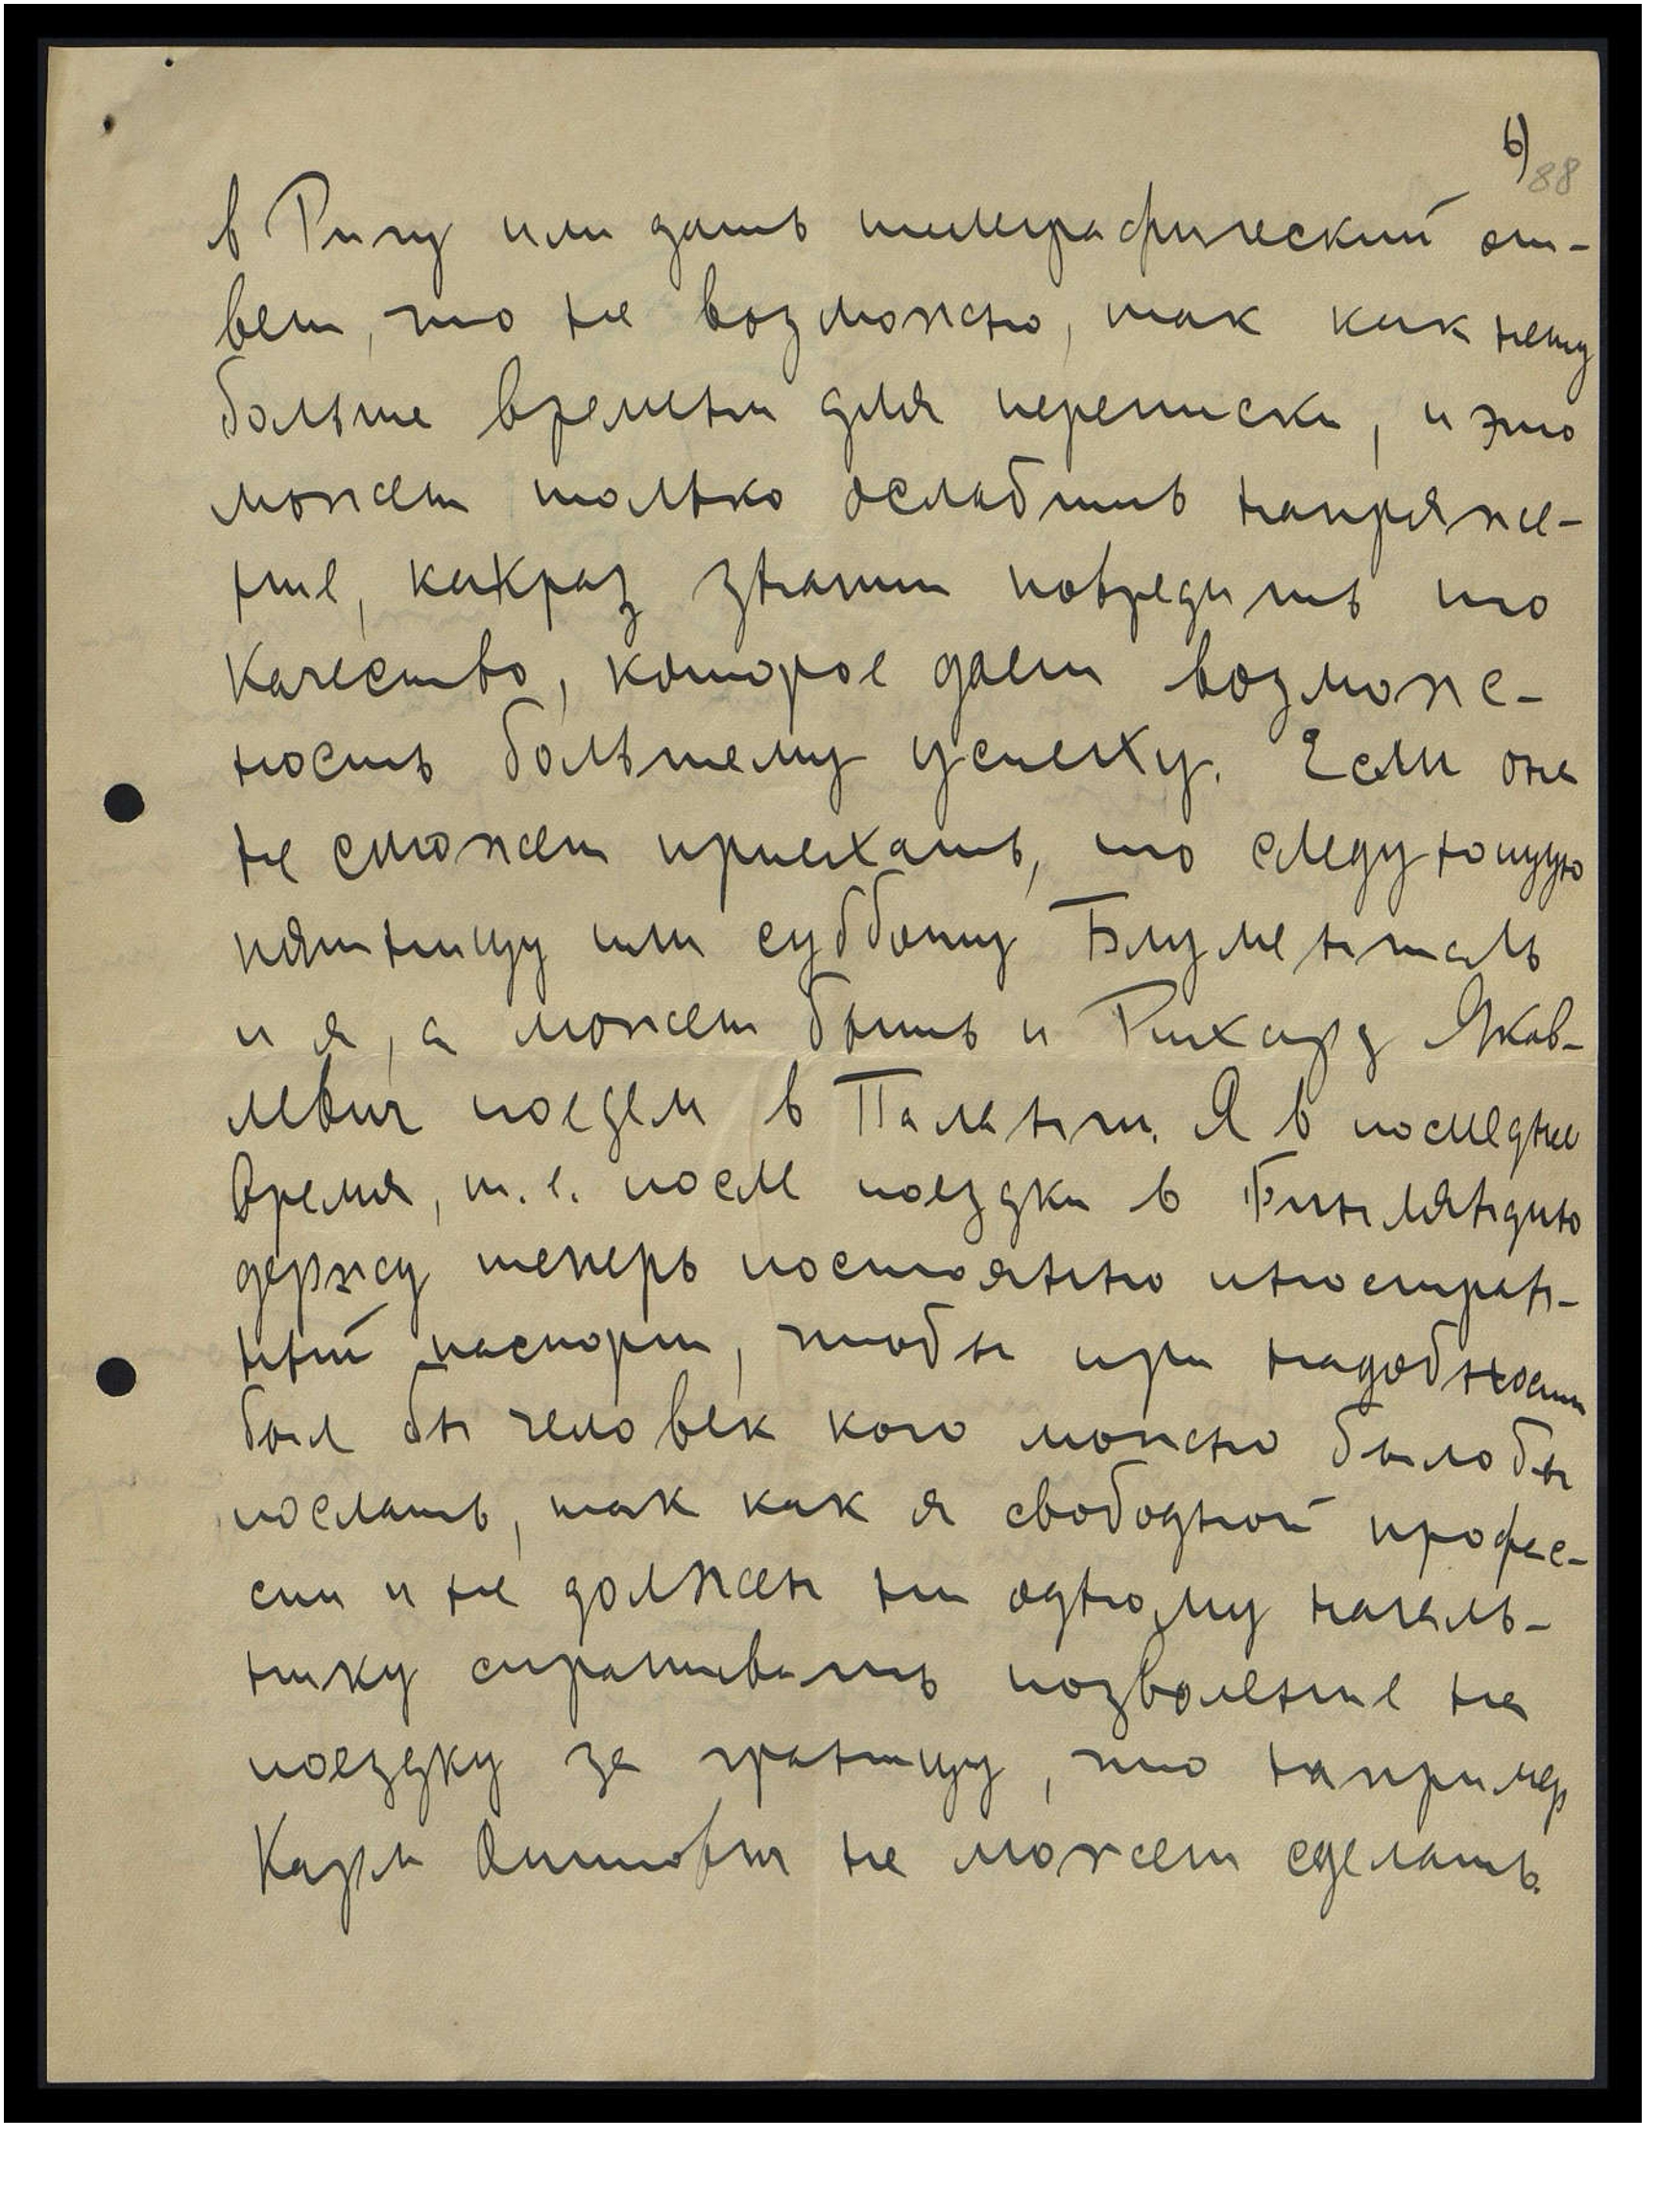 6)
88
в Ригу или дать телеграфический от-
вет, что не возможно, так как нету
больше времени для переписки, и это
может только ослабить напряже-
ние, какраз значит повредить то
качество, которое дает возмож-
ность большему успеху. Если она
не сможет приехать, то следующую
пятницу или субботу Блументаль
и я, а может быть и Рихард Яков-
левич поедем в Паланги. Я в последнее
время, т.е. после поездки в Финляндию
держу теперь постоянно иностран-
ный паспорт, чтобы при надобности
был бы человек кого можно было бы
послать, так как я свободной профес-
сии и не должен ни одному началь-
нику спрашивать позволение на
поездку за границу, что например
Карл Оттович не может сделать.